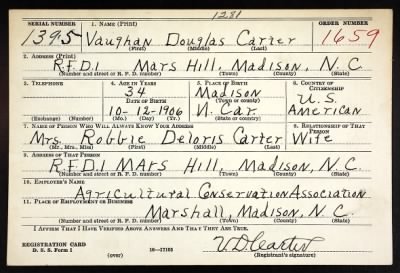 1281
SERIAL NUMBER 1. NAME (Print) ORDER NUMBER
1395 Vaughan Douglas Carter 1659
(First) (Middle) (Last)
2. ADDRESS (Print)
R.F.D.1 Mars Hill, Madison, N.C.
(Number and street or R. F. D. number) (Town) (County) (State)
3. TELEPHONE 4. AGE IN YEARS 5. PLACE OF BIRTH 6. COUNTRY OF CITIZENSHIP
34 Madison U.S.
DATE OF BIRTH (Town or county)
10-12-1906 N. Car. American
(Exchange) (Number) (Mo.) (Day) (Yr.) (State or country)
7. NAME OF PERSON WHO WILL ALWAYS KNOW YOUR ADDRESS 8. RELATIONSHIP OF THAT PERSON
Mrs. Robbie Deloris Carter Wife
(Mr., Mrs., Miss) (First) (Middle) (Last)
9. ADDRESS OF THAT PERSON
R.F.D.1 Mars Hill, Madison, N.C.
(Number and street or R. F. D. number) (Town) (County) (State)
10. EMPLOYER'S NAME
Agricultural Conservation Association
11. PLACE OF EMPLOYMENT OR BUSINESS
Marshall Madison, N.C.
(Number and street or R. F. D. number) (Town) (County) (State)
I AFFIRM THAT I HAVE VERIFIED ABOVE ANSWERS AND THAT THEY ARE TRUE.
REGISTRATION CARD
D. S. S. Form 1 (over) 16-17105 V.D. Carter
(Registrant's signature)